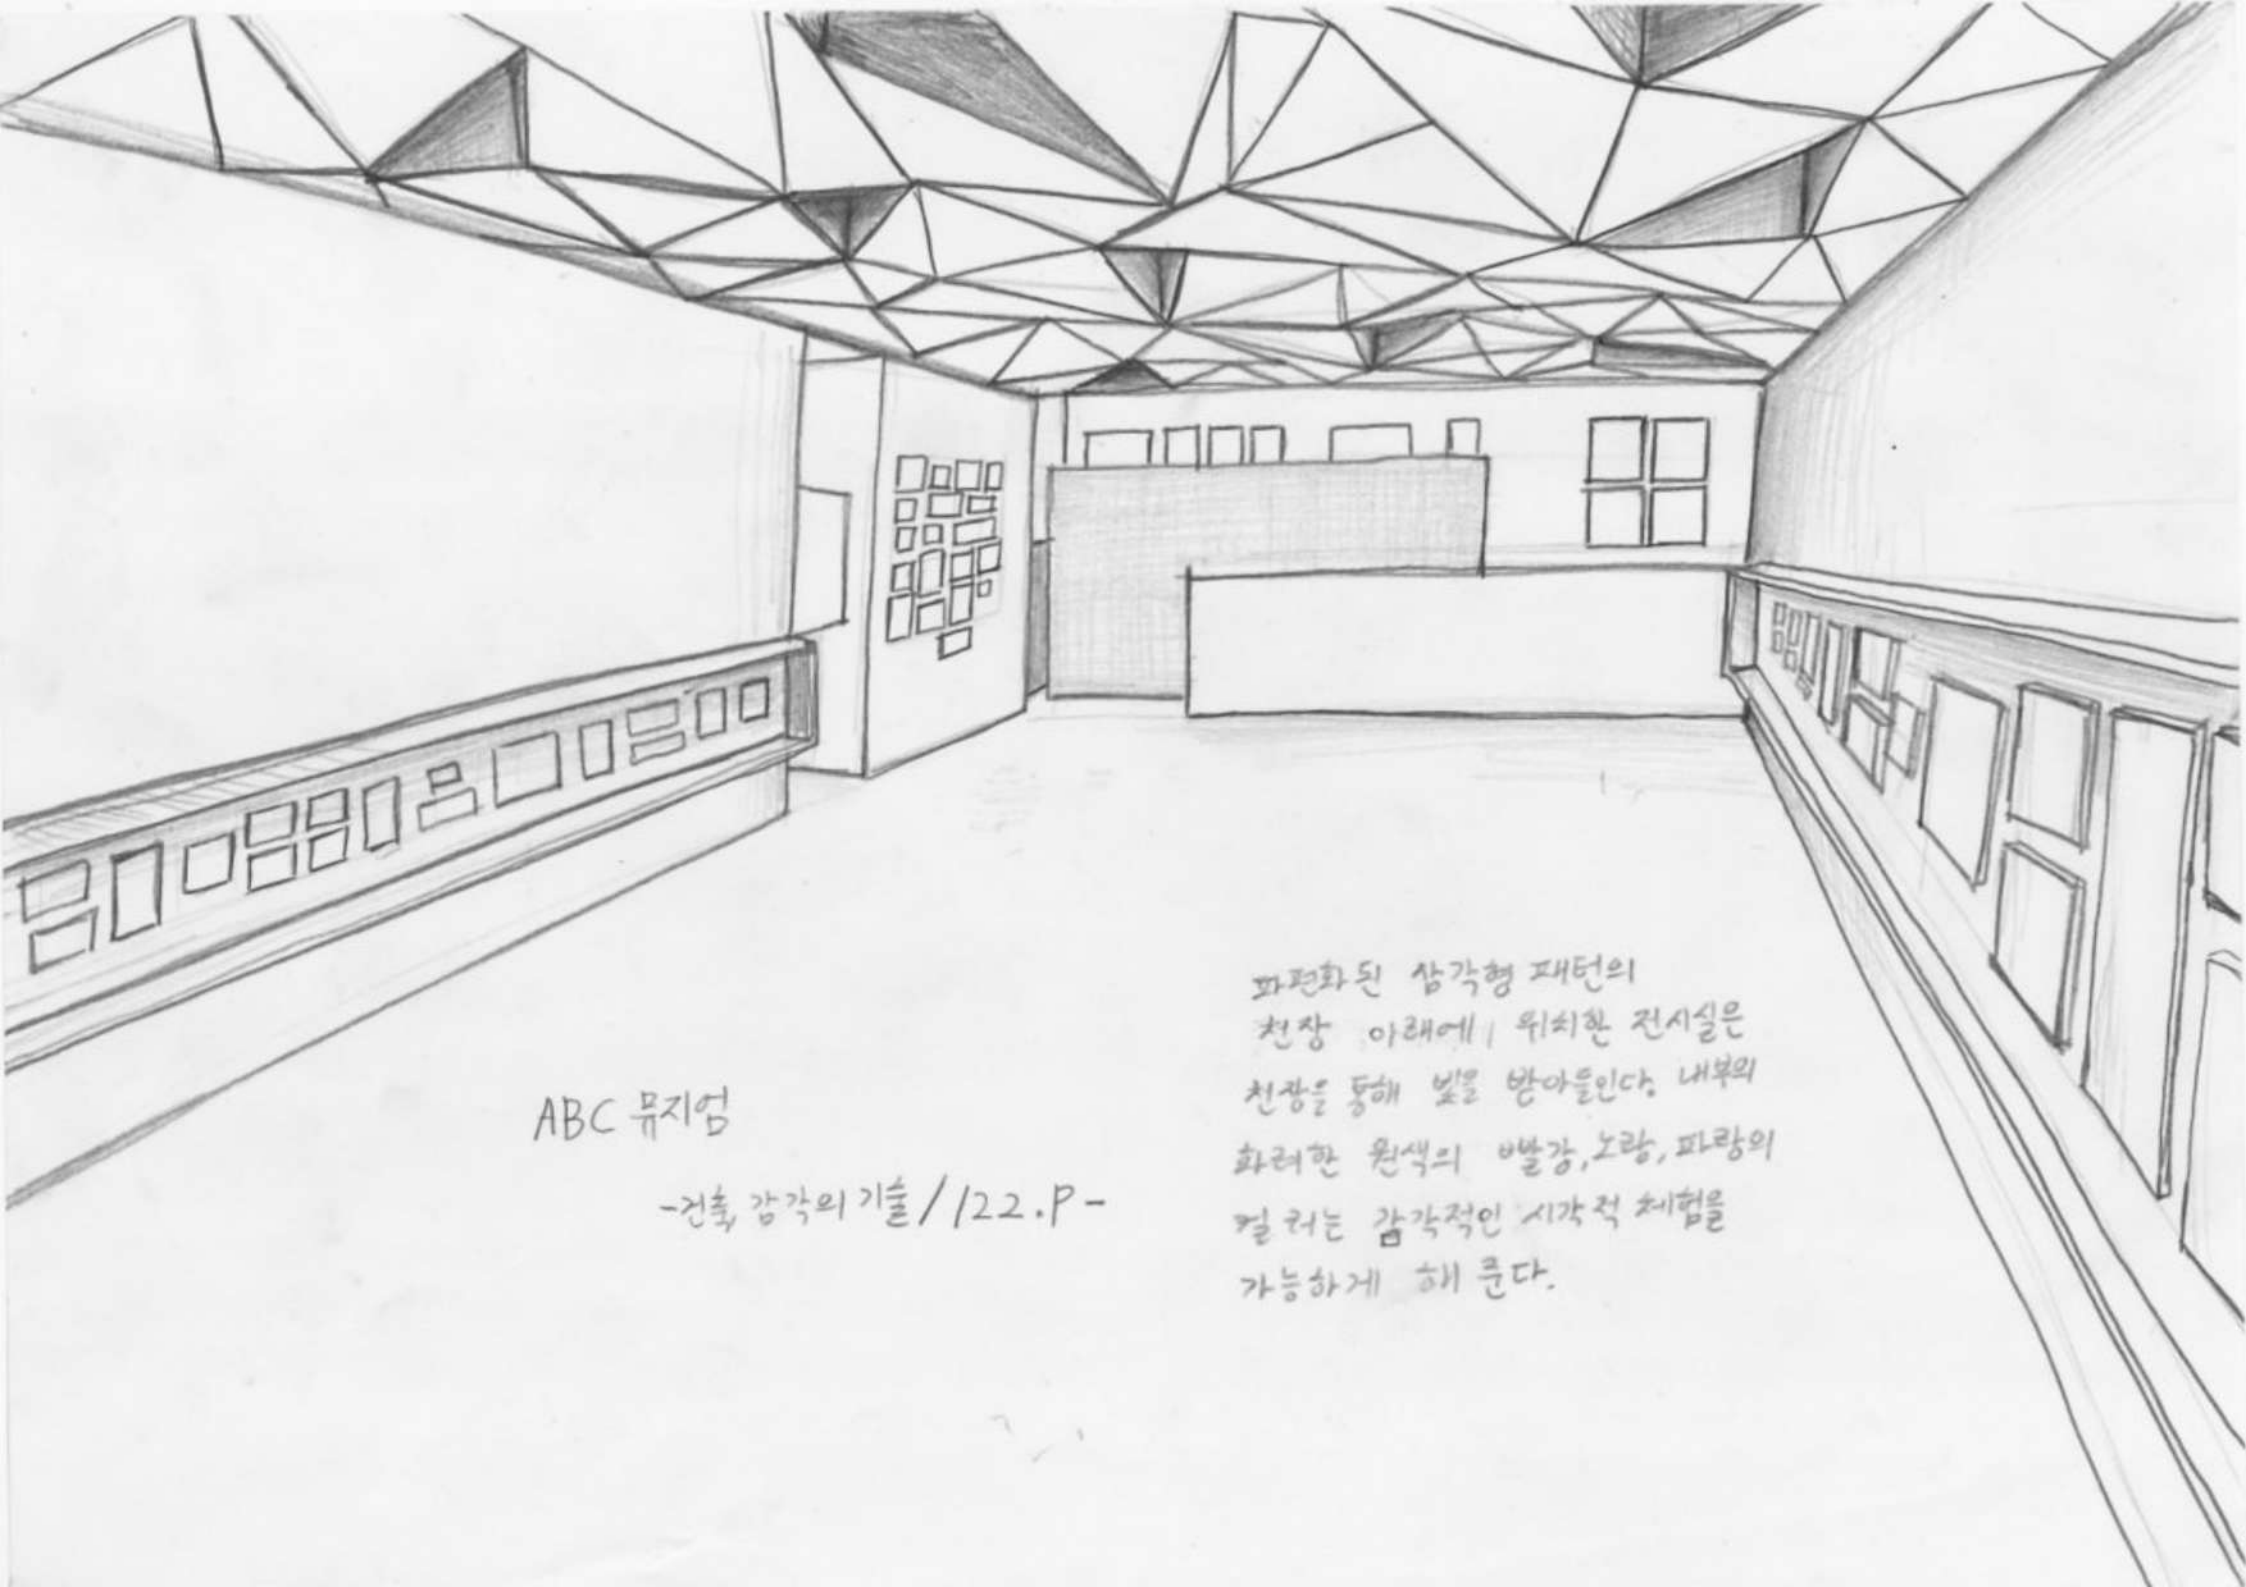 ABC 뮤지엄
-건축, 감각의 기술/122.P-
파편화된 삼각형 패턴의
천장 아래에 위치한 전시실은
천장을 통해 빛을 받아들인다. 내부의
화려한 원색의 빨강, 노랑, 파랑의
컬러는 감각적인 시각적 체험을
가능하게 해 준다.